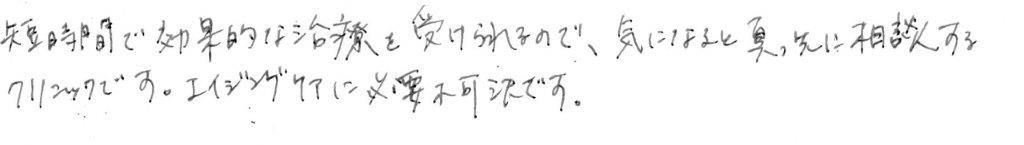 短時間で効果的な治療を受けられるので、気になると真っ先に相談する
クリニックです。エイジングケアに必要不可決です。